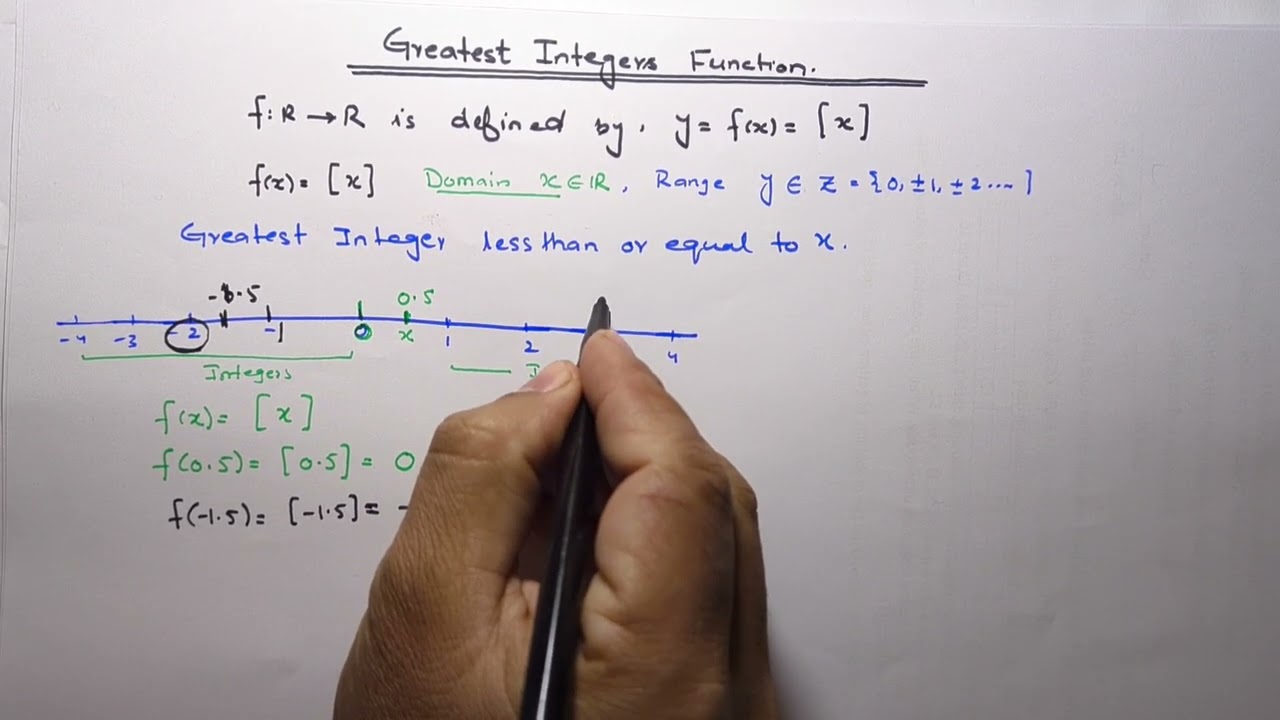 Greatest Integers Function.
f: R → R is defined by, y = f(x) = [x]
f(x) = [x] Domain x ∈ R, Range y ∈ Z = {0, ±1, ±2 .... }
Greatest Integer less than or equal to x.
0.5
-4 -3 -2 -1 0 x 1 2 4
Integers
f(x) = [x]
f(0.5) = [0.5] = 0
f(-1.5) = [-1.5] = -